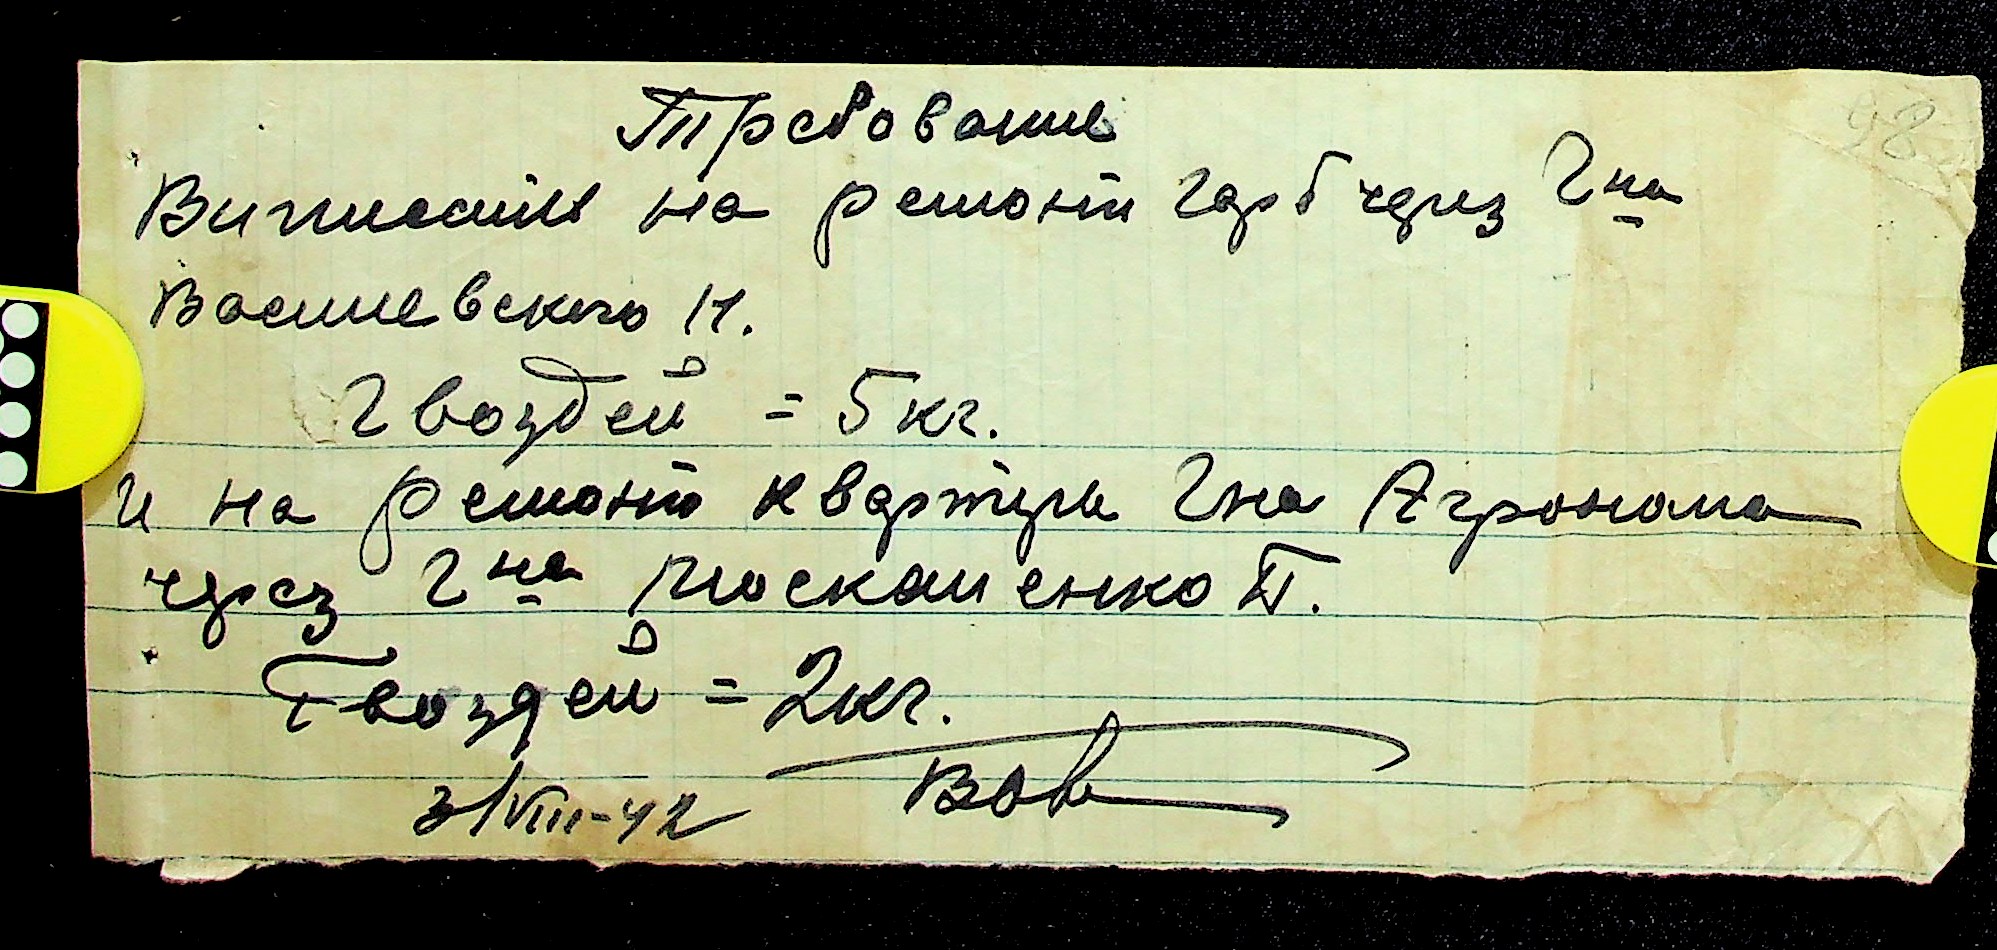 Требование
98
Виписати на ремонт гарб через г<sup>на</sup>
Василевского Н.
Гвоздей = 5 кг.
и на ремонт квартиры г<sup>на</sup> Агронома
через г<sup>на</sup> Москаленко П.
Гвоздей = 2 кг.
3/VIII-42